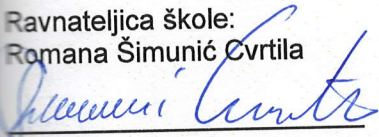 Ravnateljica škole:
Romana Šimunić Cvrtila